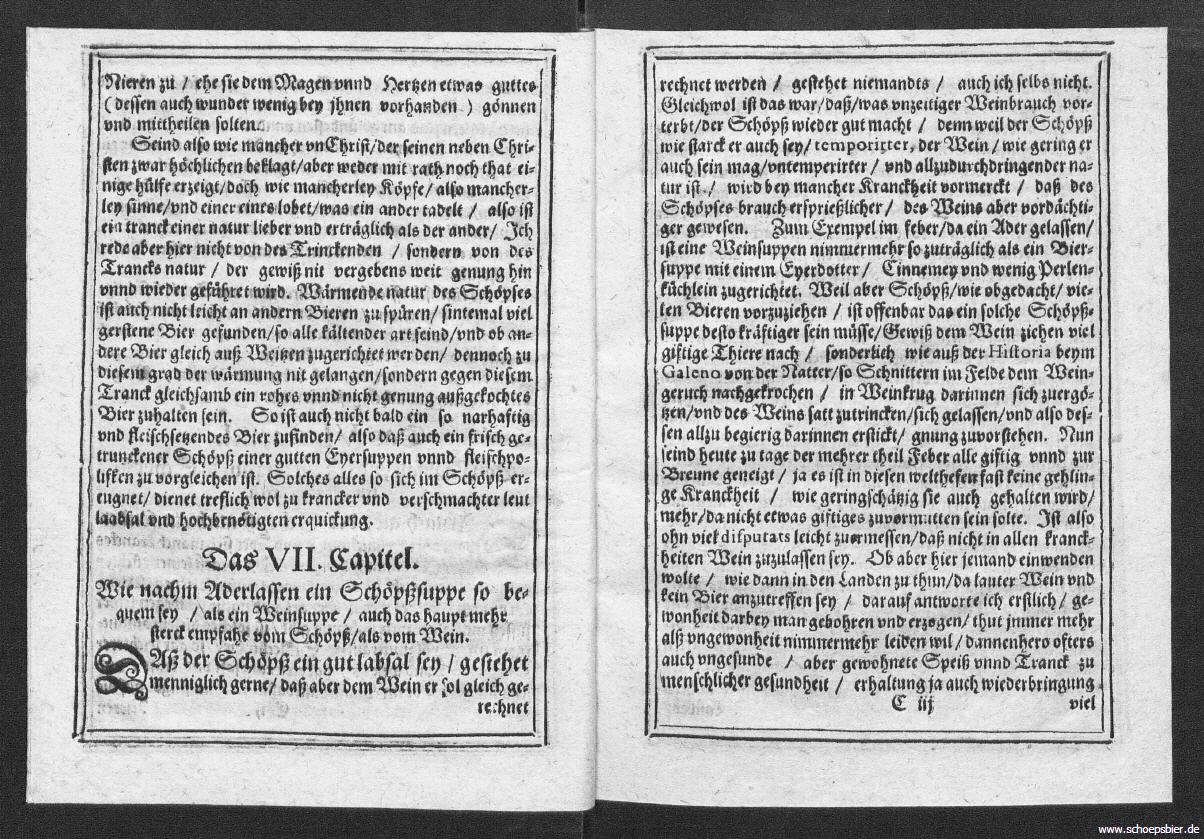 Nieren zu / ehe sie dem Magen vnnd Hertzen etwas guttes
( dessen auch wunder wenig bey jhnen vorhanden ) gönnen
vnd mittheilen solten.
Seind also wie mancher vnChrist/der seinen neben Chri-
sten zwar höchlichen beklagt/aber weder mit rath noch that ei-
nige hülfe erzeigt/doch wie mancherley Köpfe/ also mancher-
ley sinne/vnd einer eines lobet/was ein ander tadelt / also ist
ein tranck einer natur lieber vnd erträglich als der ander/ Jch
rede aber hier nicht von des Trinckenden / sondern von des
Trancks natur / der gewiß nit vergebens weit genung hin
vnnd wieder geführet wird. Wärmende natur des Schöpses
ist auch nicht leicht an andern Bieren zu spüren/ sintemal viel
gerstene Bier gefunden/so alle kältender art seind/vnd ob an-
dere Bier gleich auß Weitzen zugerichtet werden/ dennoch zu
diesem grad der wärmung nit gelangen/sondern gegen diesem
Tranck gleichsamb ein rohes vnnd nicht genung außgekochtes
Bier zuhalten sein. So ist auch nicht bald ein so narhaftig
vnd fleischsetzendes Bier zufinden/ also daß auch ein frisch ge-
trunckener Schöpß einer gutten Eyersuppen vnnd fleischpo-
lifken zu vorgleichen ist. Solches alles so sich im Schöpß er-
eugnet/ dienet treflich wol zu krancker vnd verschmachter leut
laabsal vnd hochbenötigten erquickung.
Das VII. Capitel.
Wie nachm Aderlassen ein Schöpßsuppe so be-
quem sey / als ein Weinsuppe / auch das haupt mehr
sterck empfahe vom Schöpß/als vom Wein.
DAß der Schöpß ein gut labsal sey / gestehet
menniglich gerne/ daß aber dem Wein er sol gleich ge-
rechnet
rechnet werden / gestehet niemandts / auch ich selbs nicht.
Gleichwol ist das war/daß/was vnzeitiger Weinbrauch vor-
terbt/der Schöpß wieder gut macht / denn weil der Schöpß
wie starck er auch sey/ temporirter, der Wein / wie gering er
auch sein mag/vntemperirter / vnd allzudurchdringender na-
tur ist / wird bey mancher Kranckheit vormerckt / daß des
Schöpses brauch ersprießlicher / des Weins aber vordächti-
ger gewesen. Zum Exempel im feber/da ein Ader gelassen/
ist eine Weinsuppen nimmermehr so zuträglich als ein Bier-
suppe mit einem Eyerdotter / Cinnemey vnd wenig Perlen-
küchlein zugerichtet. Weil aber Schöpß/wie obgedacht/ vie-
len Bieren vorzuziehen / ist offenbar das ein solche Schöpß-
suppe desto kräftiger sein müsse/Gewiß dem Wein ziehen viel
giftige Thiere nach / sonderlich wie auß der Historia beym
Galeno von der Natter/so Schnittern im Felde dem Wein-
geruch nachgekrochen / in Weinkrug darinnen sich zuergö-
tzen/vnd des Weins satt zutrincken/sich gelassen/vnd also des-
sen allzu begierig darinnen erstickt/ gnung zuvorstehen. Nun
seind heute zu tage der mehrer theil Feber alle giftig vnnd zur
Breune geneigt / ja es ist in diesen welthefen fast keine gehlin-
ge Kranckheit / wie geringschätzig sie auch gehalten wird/
mehr/da nicht etwas giftiges zuvormutten sein solte. Jst also
ohn viel disputats leicht zuermessen/daß nicht in allen kranck-
heiten Wein zuzulassen sey. Ob aber hier jemand einwenden
wolte / wie dann in den Landen zu thun/da lauter Wein vnd
kein Bier anzutreffen sey / darauf antworte ich erstlich / ge-
wonheit darbey man gebohren vnd erzogen/ thut jmmer mehr
alß vngewonheit nimmermehr leiden wil/dannenhero ofters
auch vngesunde / aber gewohnete Speiß vnnd Tranck zu
menschlicher gesundheit / erhaltung ja auch wiederbringung
C iij viel
www.schoepsbier.de